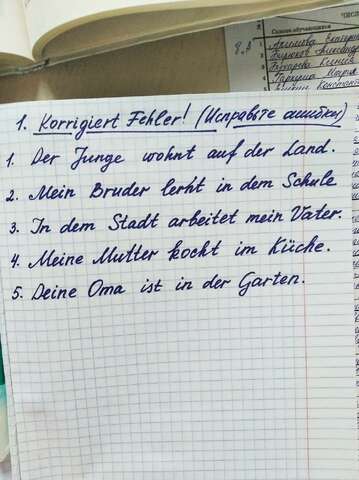 8.А
1. Korrigiert Fehler! (Исправьте ошибки)
1. Der Junge wohnt auf der Land.
2. Mein Bruder lernt in dem Schule
3. In dem Stadt arbeitet mein Vater.
4. Meine Mutter kocht im Küche.
5. Deine Oma ist in der Garten.